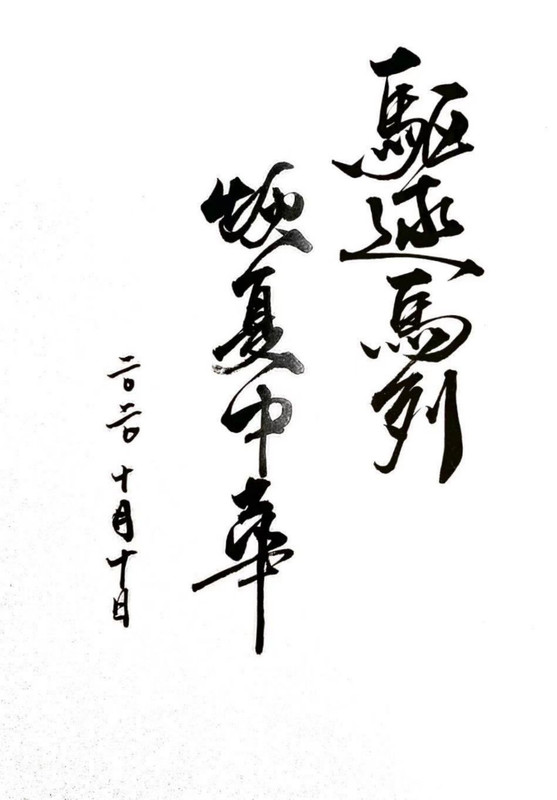 驅逐馬列
恢复中華
二〇二〇十月十日